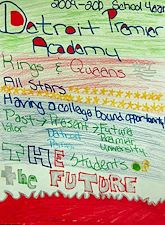 School Year
Detroit Premier
Academy
Kings & Queens
All Stars
Having a college bound opportunity
Past > Present > Future
Valor Detroit Kramer
University
THE Students
of
the FUTURE